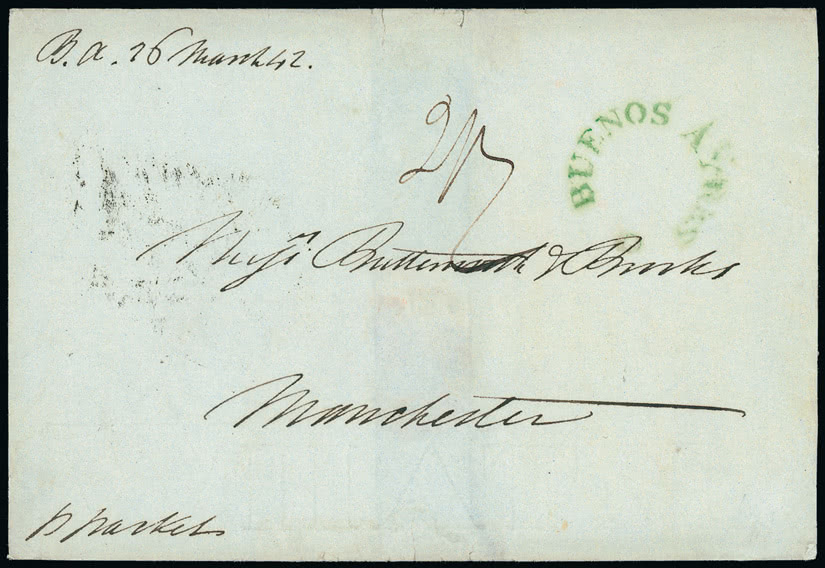 B.A. 26 March 42.
2/7
BUENOS AYRES
Messrs Butterworth & Brooks
Manchester
p packet